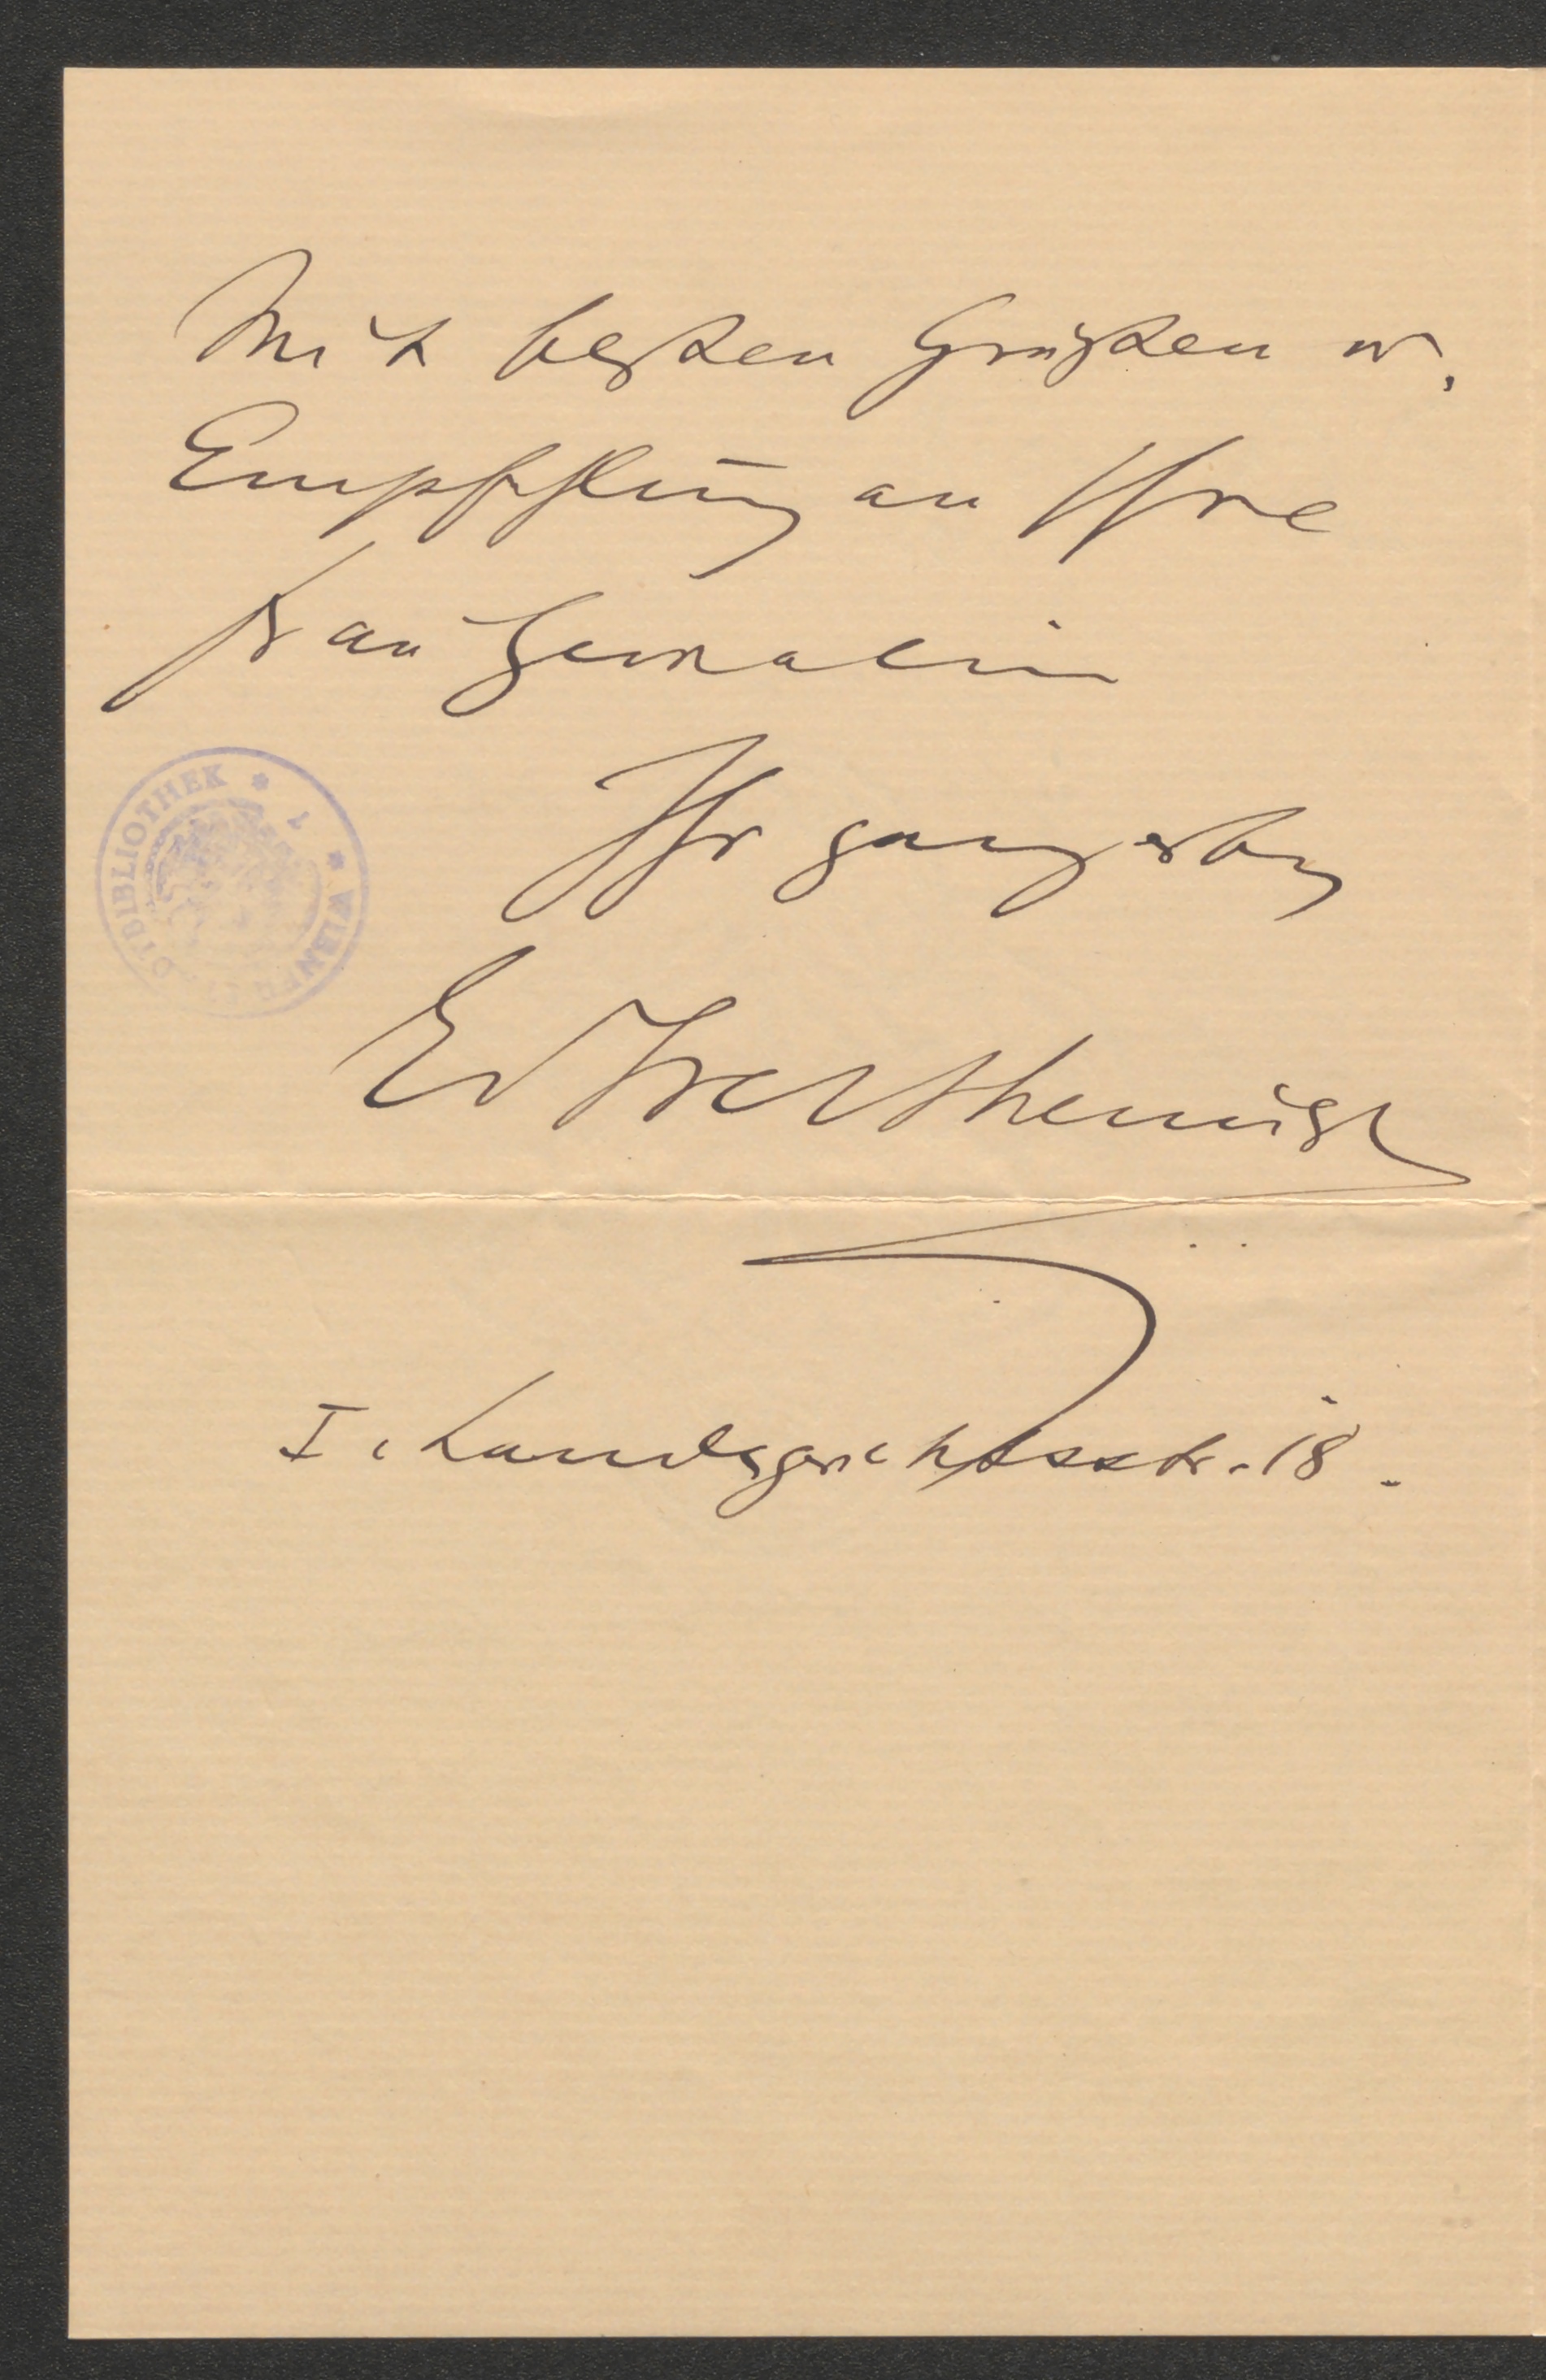 Mit besten Grüßen u.
Empfehlung an Ihre
Frau Gemalin
Ihr ganz erg
BIBLIOTHEK * * WIENER
Ed Wertheimer
I. Landesgerichtsstr. 18.